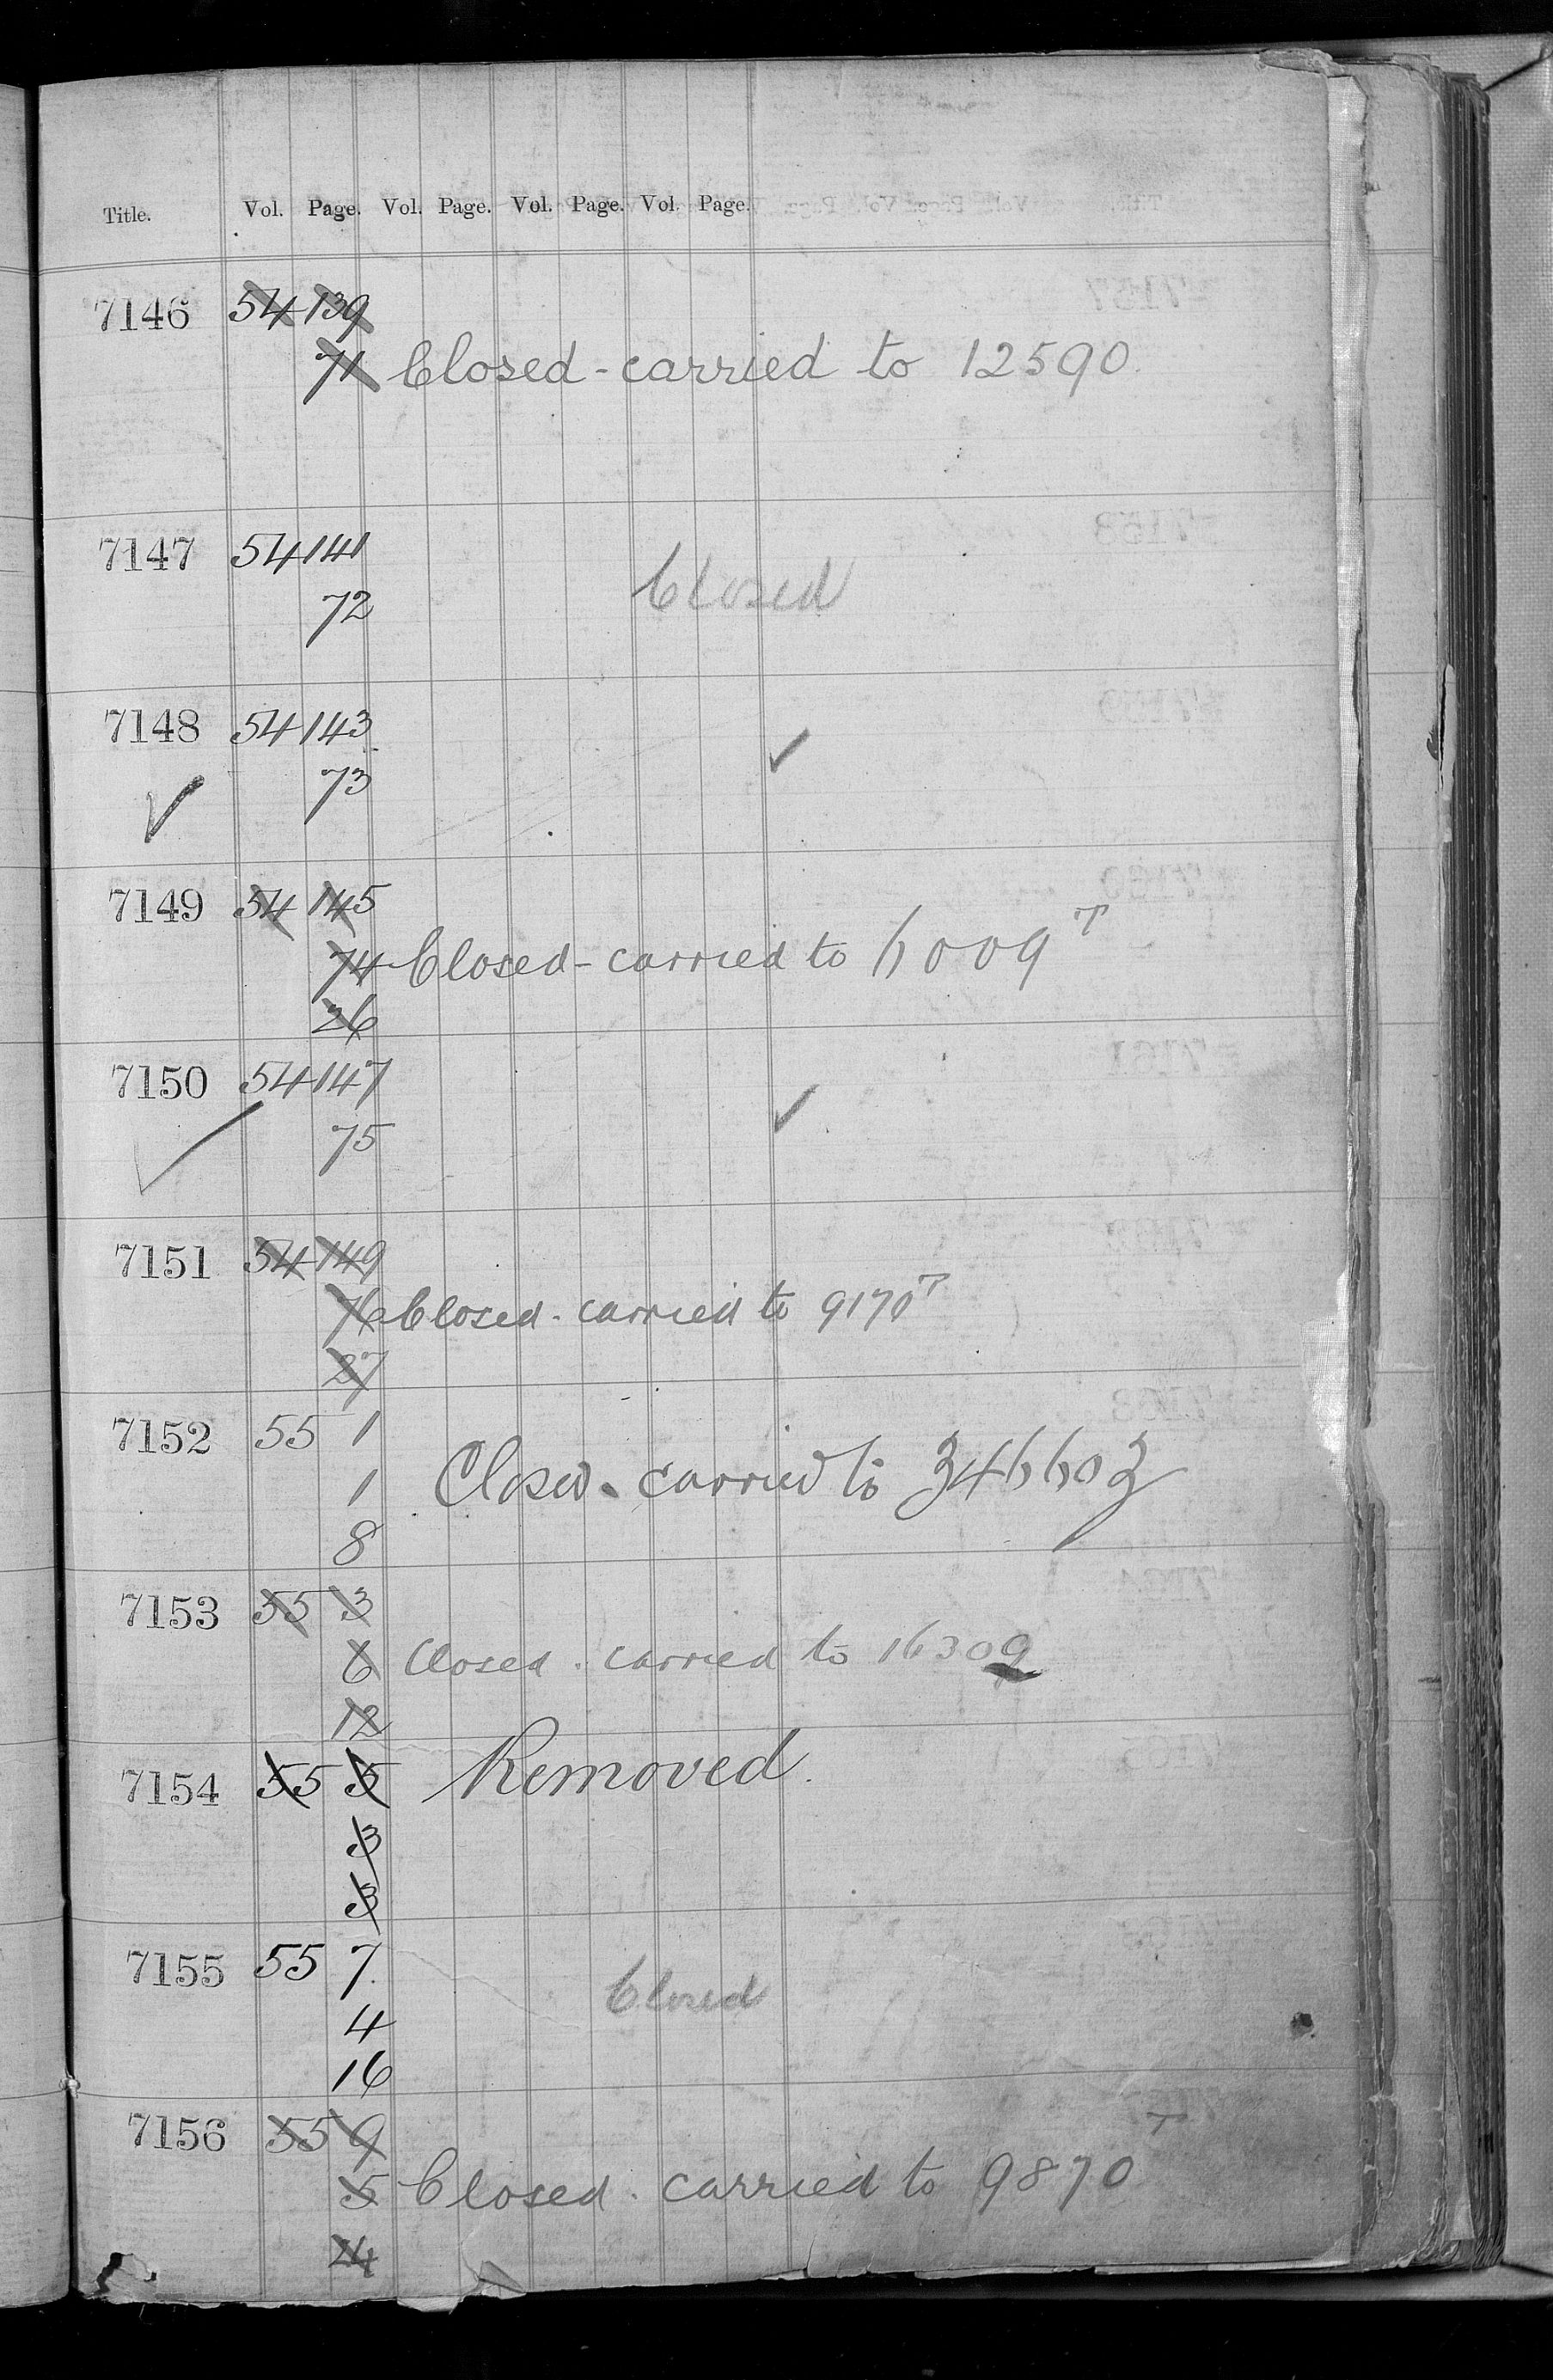 Title. Vol. Page. Vol. Page. Vol. Page. Vol. Page.
7146 54 139
71 Closed - carried to 12590.
7147 54 141
Closed
72
7148 54 143
✓
73
✓
7149 54 145
74 Closed - carried to 6009 T
26
7150 54 147
✓
75
✓
7151 54 149
76 Closed - carried to 9170 T
27
7152 55 1
1 Closed - carried to
8
7153 55 3
6 Closed. carried to 16309
12
7154 55 5 Removed.
3
3
7155 55 7.
Closed
4
16
7156 55 9
5 Closed. carried to 9870 T
24